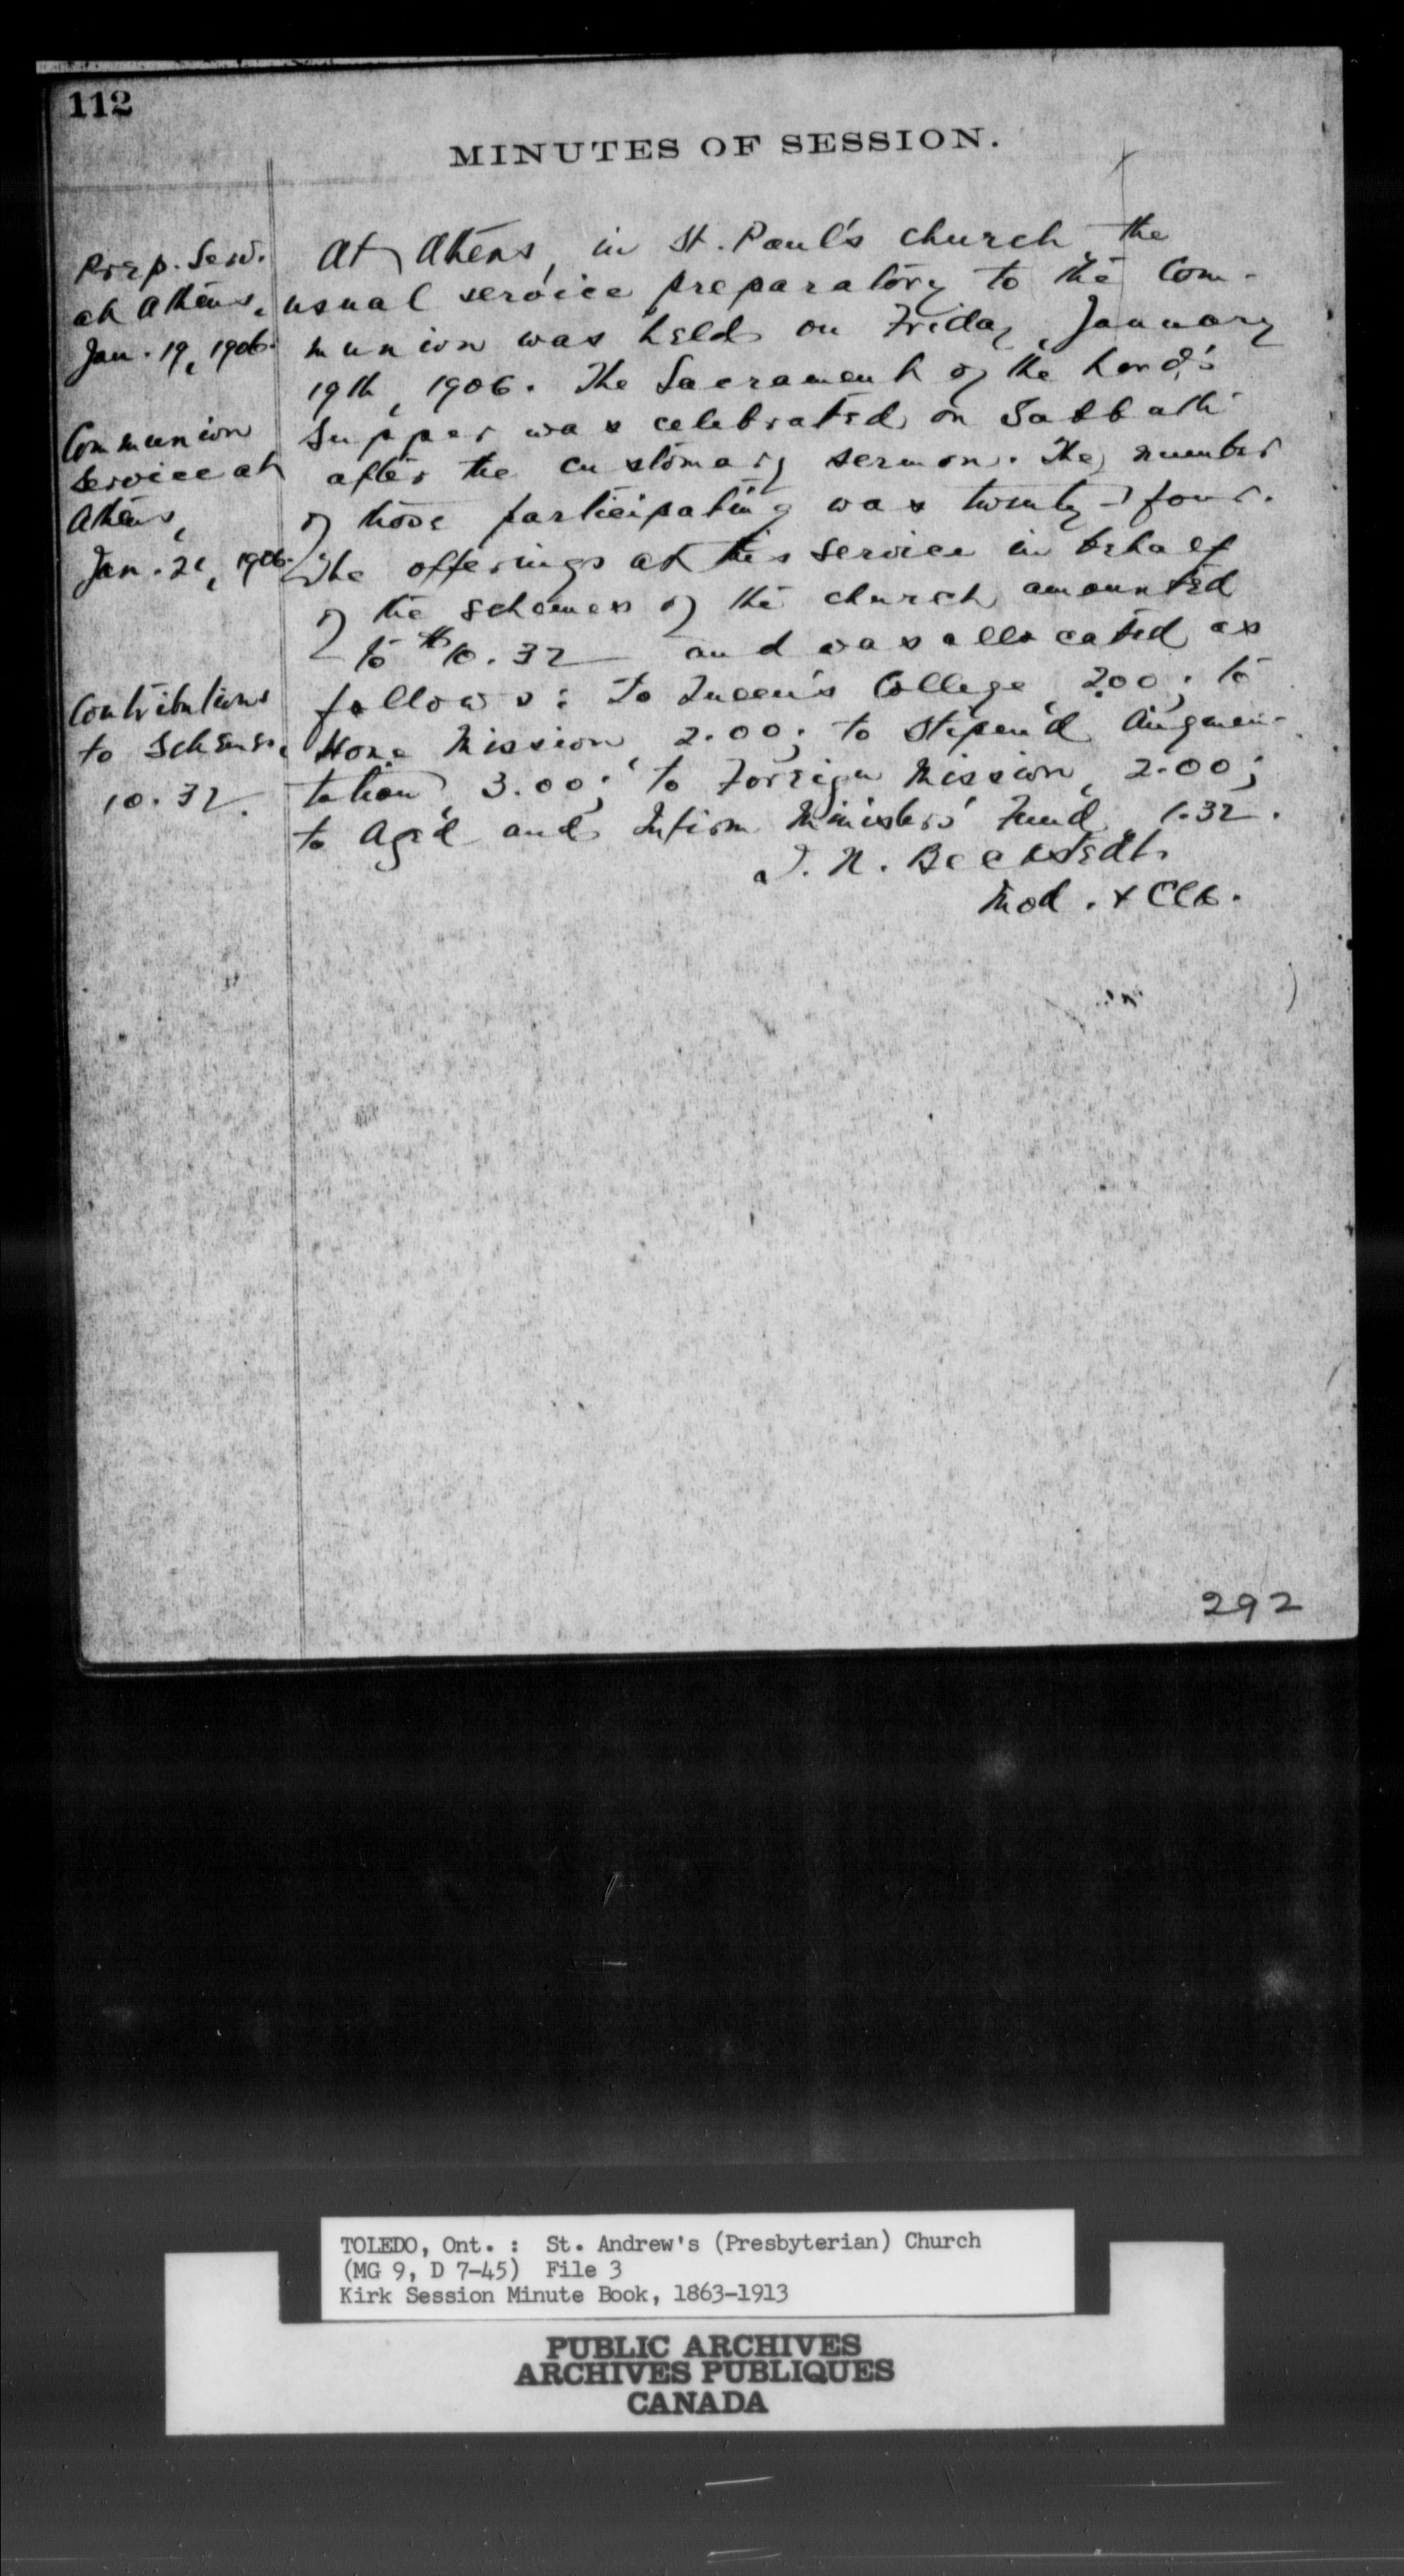 112
MINUTES OF SESSION.
Prep. Serv.
at Athens,
Jan. 19, 1906.
Communion
Service at
Athens,
Jan. 21, 1906.
Contributions
to Schemes,
10.32.
At Athens, in St. Paul's church, the
usual service preparatory to the Com-
munion was held on Friday, January
19th, 1906. The Sacrament of the Lord's
Supper was celebrated on Sabbath
after the customary sermon. The number
of those participating was twenty-four.
The offerings at this service in behalf
of the schemes of the church amounted
to $10.32 and was allocated as
follows: To Queen's College, 2.00; to
Home Mission, 2.00; to Stipend Augmen-
tation, 3.00; to Foreign Mission, 2.00;
to Aged and Infirm Ministers' Fund, 1.32.
I. N. Beckstedt,
Mod. & Clk.
292
TOLEDO, Ont. : St. Andrew's (Presbyterian) Church
(MG 9, D 7-45) File 3
Kirk Session Minute Book, 1863-1913
PUBLIC ARCHIVES
ARCHIVES PUBLIQUES
CANADA